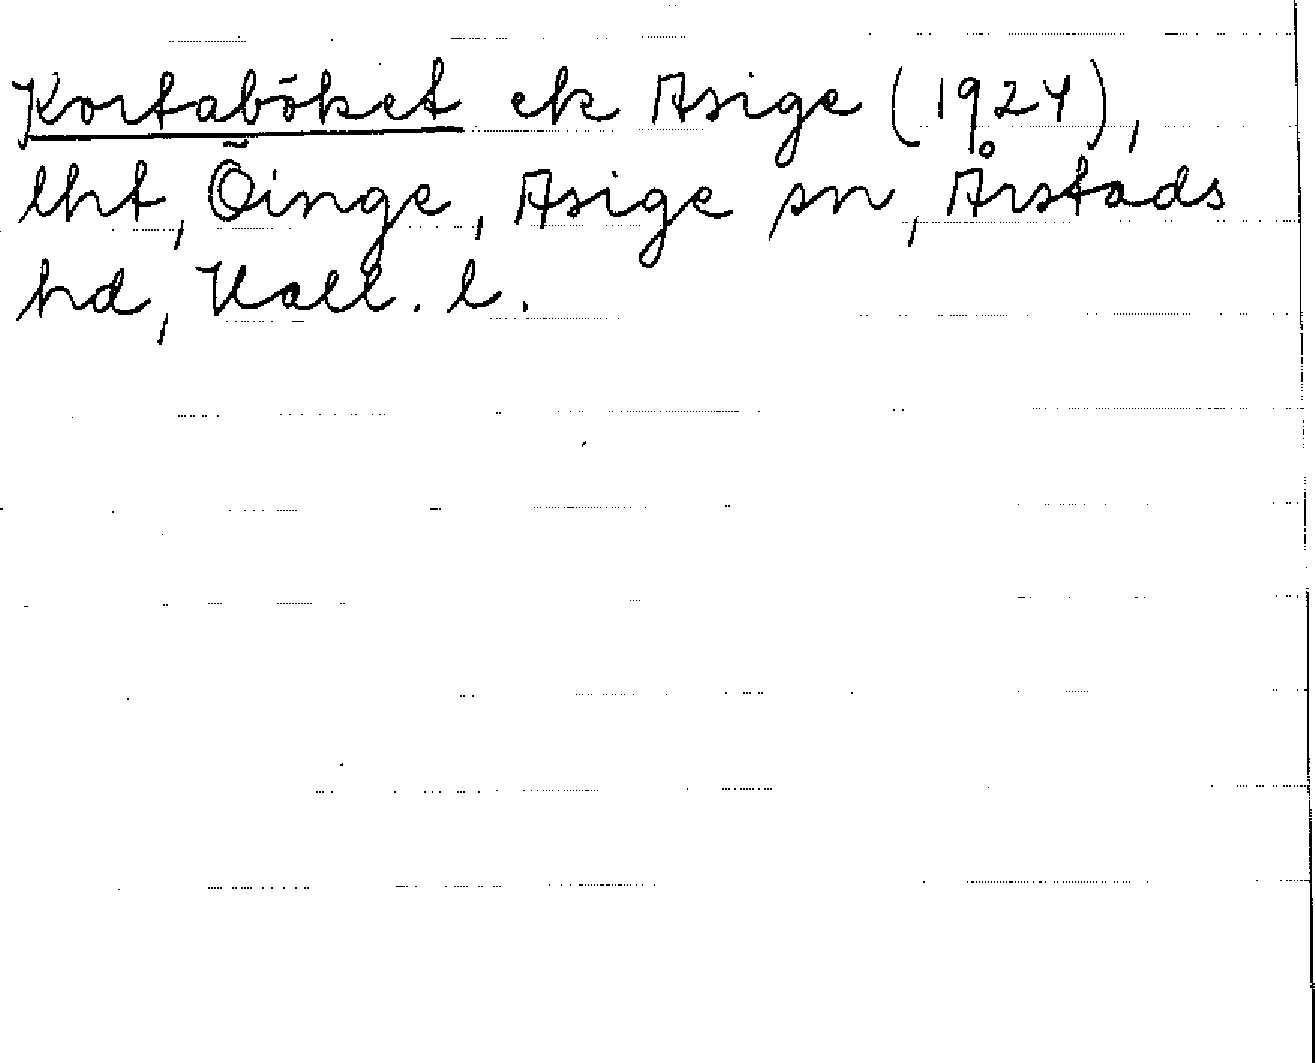 Kortabōket ek Asige (1924),
lht, Öinge, Asige sn, Årstads
hd, Hall. l.